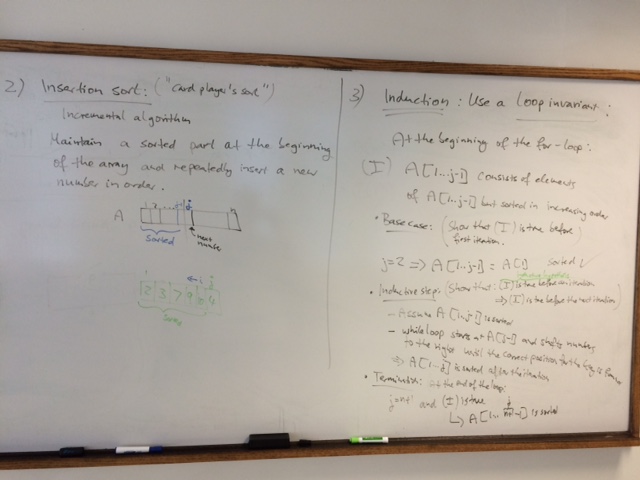 2) Insertion sort: ("Card player's sort")
Incremental algorithm
Maintain a sorted part at the beginning
of the array and repeatedly insert a new
number in order.
A
j
n
sorted
next
number
j
2 3 7 9
sorted
3) Induction: Use a loop invariant:
At the beginning of the for-loop:
(I) A[1...j-1] consists of elements
of A[1...j-1] but sorted in increasing order
• Base case: (Show that (I) is true before
first iteration.
j=2 => A[1...j-1] = A[1] sorted ✓
• Inductive step: (Show that: (I) is true before an iteration
=> (I) is true before the next iteration)
- Assume A[1...j-1] is sorted
- while loop starts at A[j-1] and shifts numbers
to the right until the correct position for the key is found
=> A[1...j] is sorted after the iteration
• Termination: At the end of the loop:
j=n+1 and (I) is true
↳ A[1... is sorted